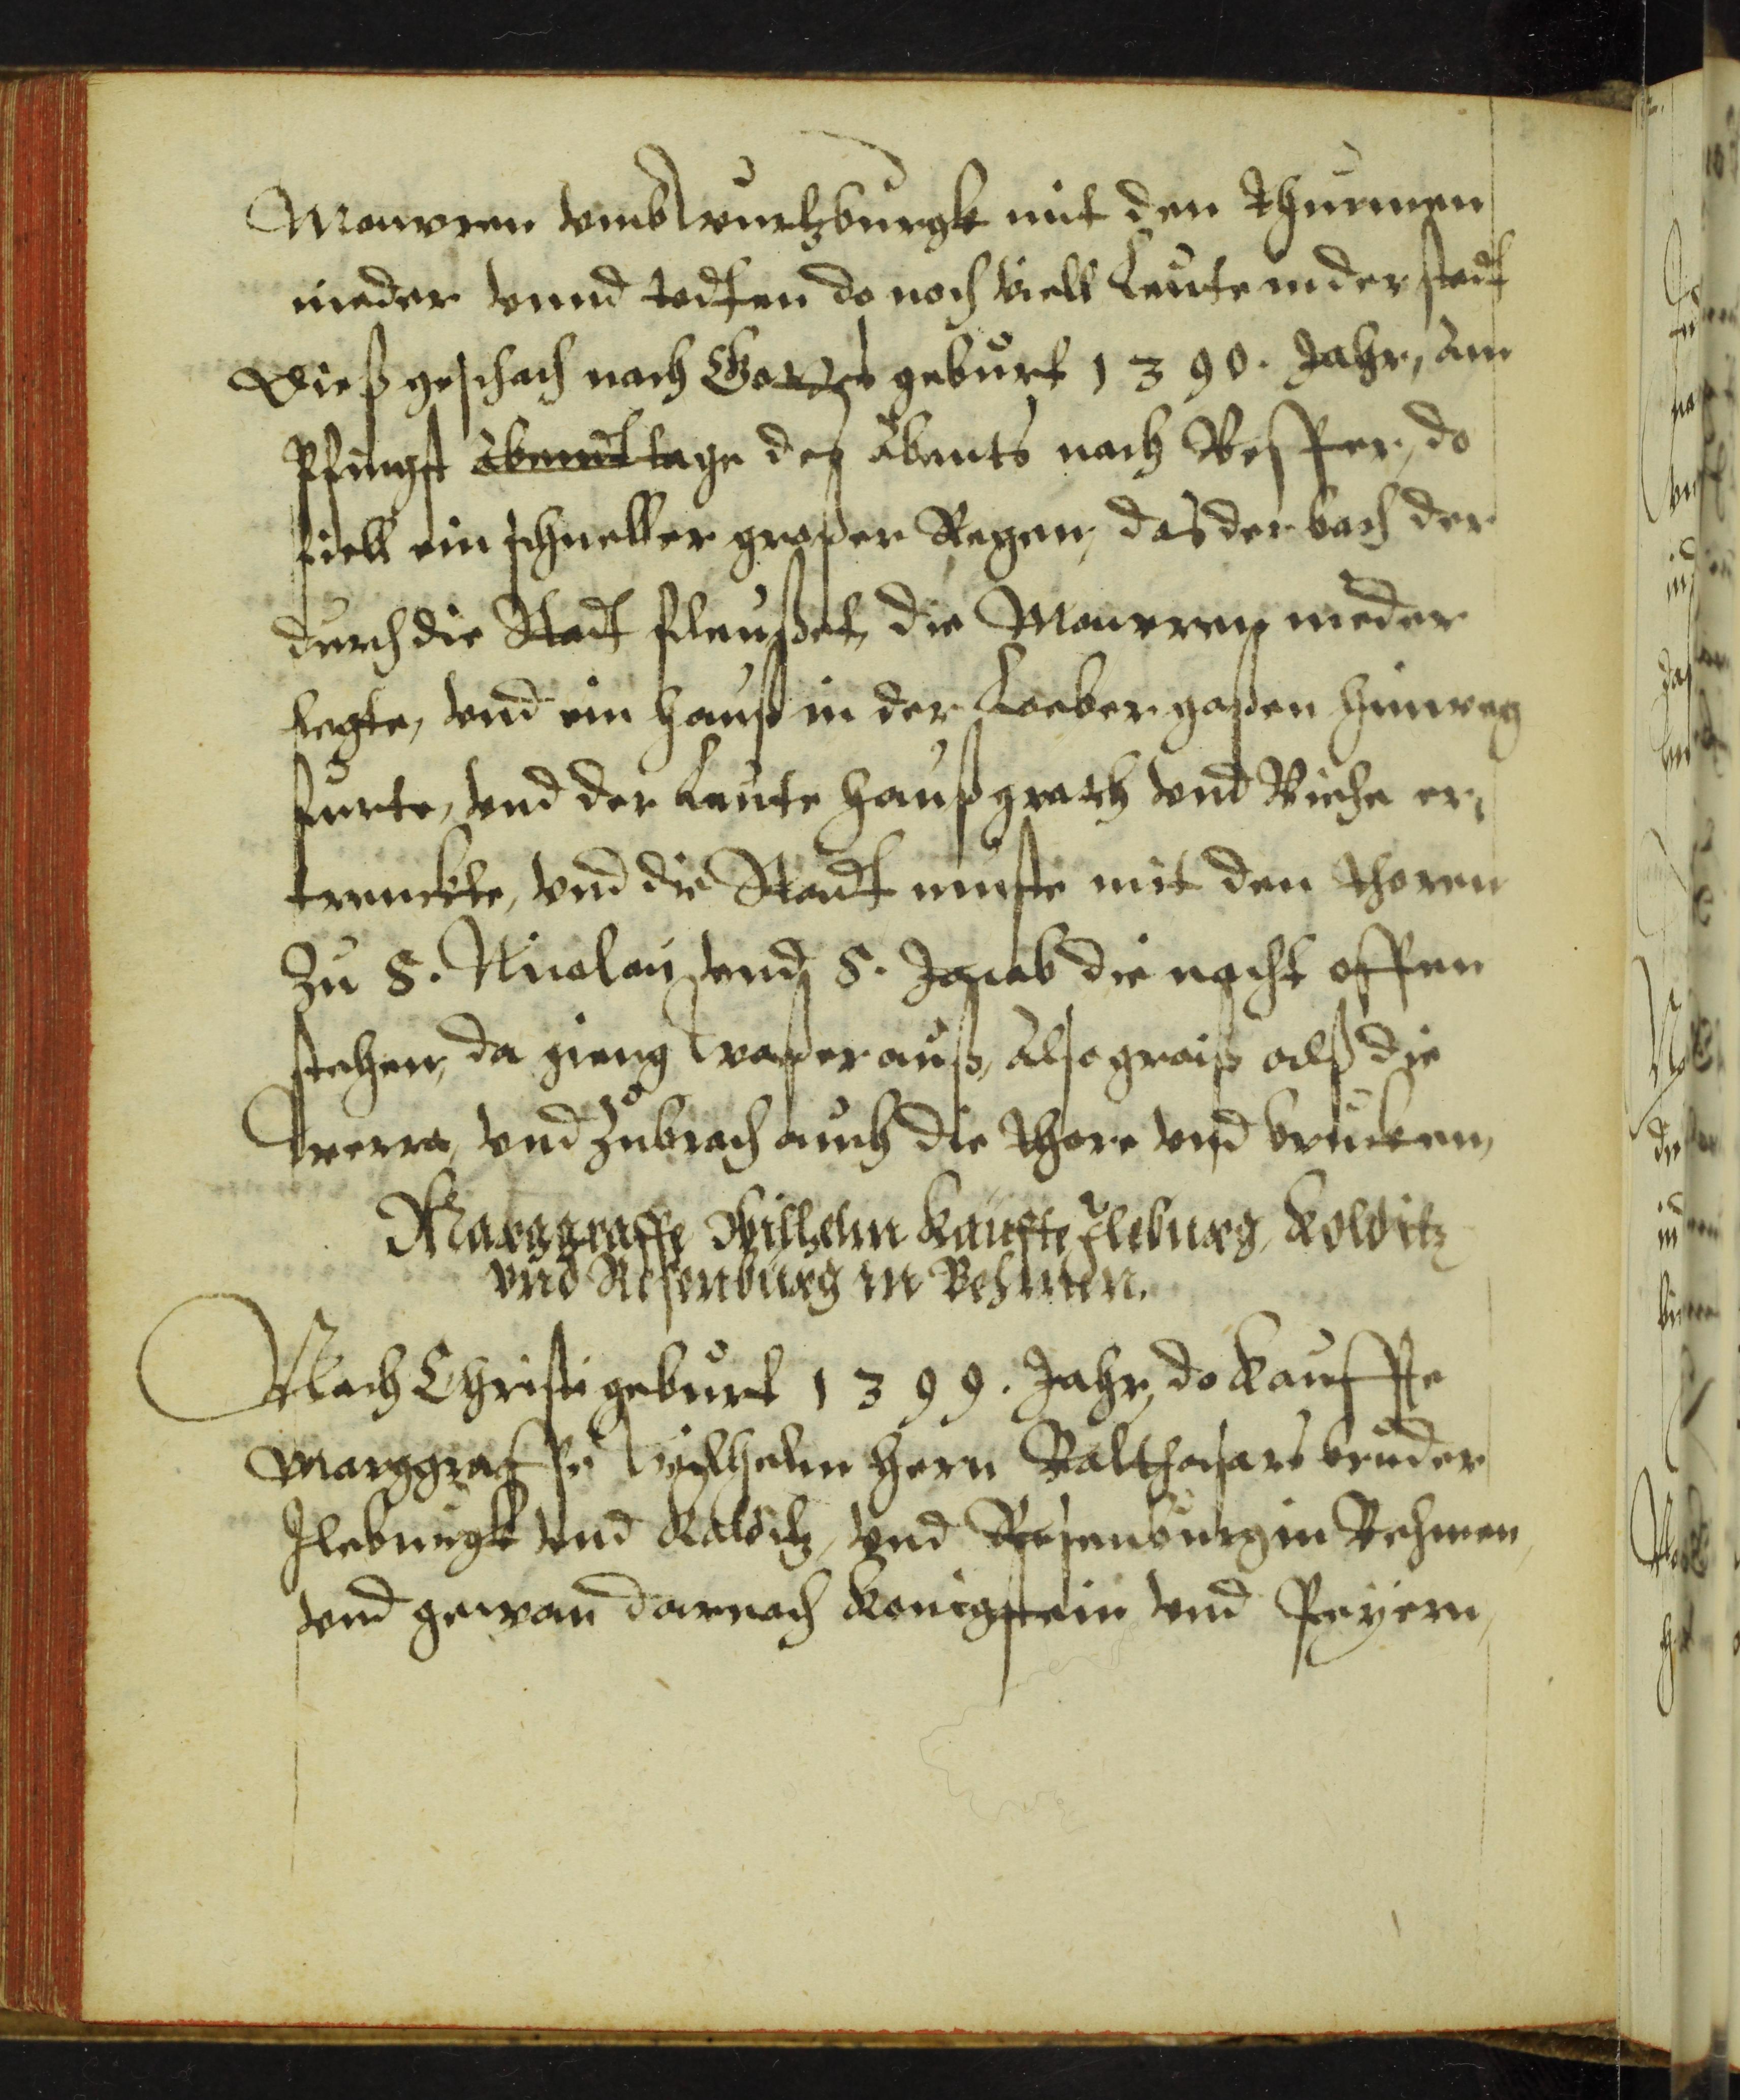 Mauren vmb Wurtzburgk mit den Thurmen
nieder vnnd todten do noch viell Leute in der stadt
Dieß geschach nach Gottes geburt 1390. Jahr, am
Pfingst abendt tage des Abents nach Vesper, do
fiell ein schneller großer Regen, das der bach der
durch die Stadt fleußet, die Mauren nieder
legte, vnd ein hauß in der Loeber gaßen hinweg
furte, vnd der Leute haußgrath vnd Viehe er¬
trenckte, vnd die Stadt muste mit den thoren
Zu S. Nicolai vnd S. Jacob die nacht offen
stehen, da gieng waßer auß, also groiß alß die
Werra, vnd Zubrach auch die thore vnd brucken,
Marggraffe Wilhelm Kauffte Ileburg, Kolditz
vnd Resenburg in Behmen.
Nach Christi geburt 1399. Jahr, do kauffte
Marggraffe Wilhelm hern Balthasars bruder
Ileburgk vnd Kalditz, vnd Resenburg in Behmen,
vnd gewan darnach Konigstein vnd Peyern,